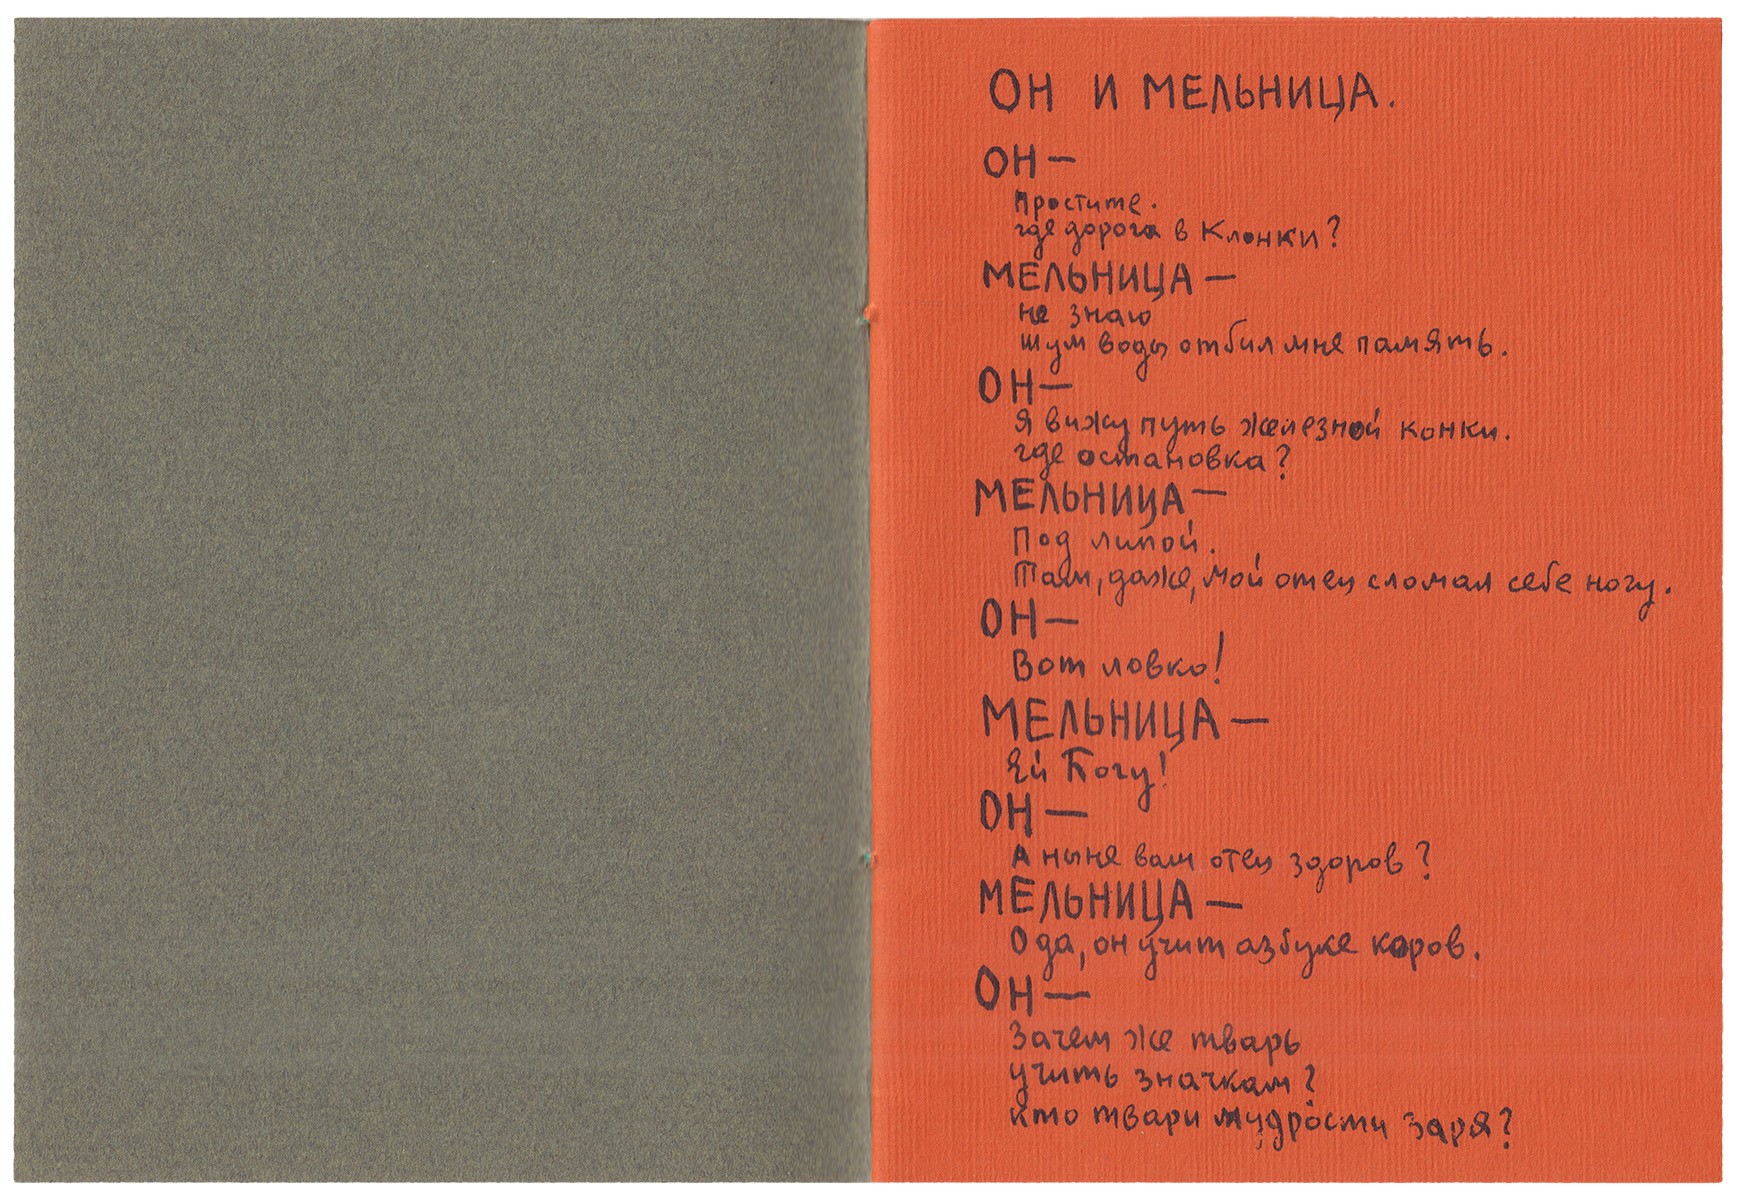 ОН И МЕЛЬНИЦА.
ОН —
Простите.
где дорога в Клонки?
МЕЛЬНИЦА —
не знаю
шум воды отбил мне память.
ОН —
Я вижу путь железной конки.
где остановка?
МЕЛЬНИЦА —
Под липой.
Там, даже, мой отец сломал себе ногу.
ОН —
Вот ловко!
МЕЛЬНИЦА —
Ей Богу!
ОН —
А ныне ваш отец здоров?
МЕЛЬНИЦА —
О да, он учит азбуке коров.
ОН —
Зачем же тварь
учить значкам?
кто твари мудрости заря?